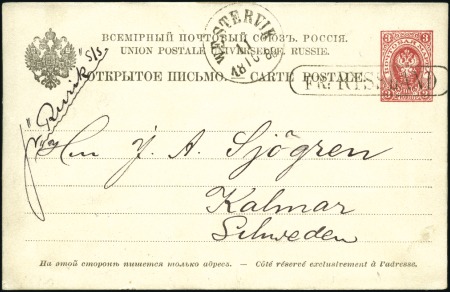 ВСЕМІРНЫЙ ПОЧТОВЫЙ СОЮЗЪ. РОССІЯ.
UNION POSTALE UNIVERSELLE. RUSSIE.
ОТКРЫТОЕ ПИСЬМО. — CARTE POSTALE.
3 3
WESTERVIK
FR: RYSSLAND
"Rurik" S/S
Hrn J. A. Sjögren
Kalmar
Schweden
На этой сторонѣ пишется только адресъ. — Côté réservé exclusivement à l'adresse.